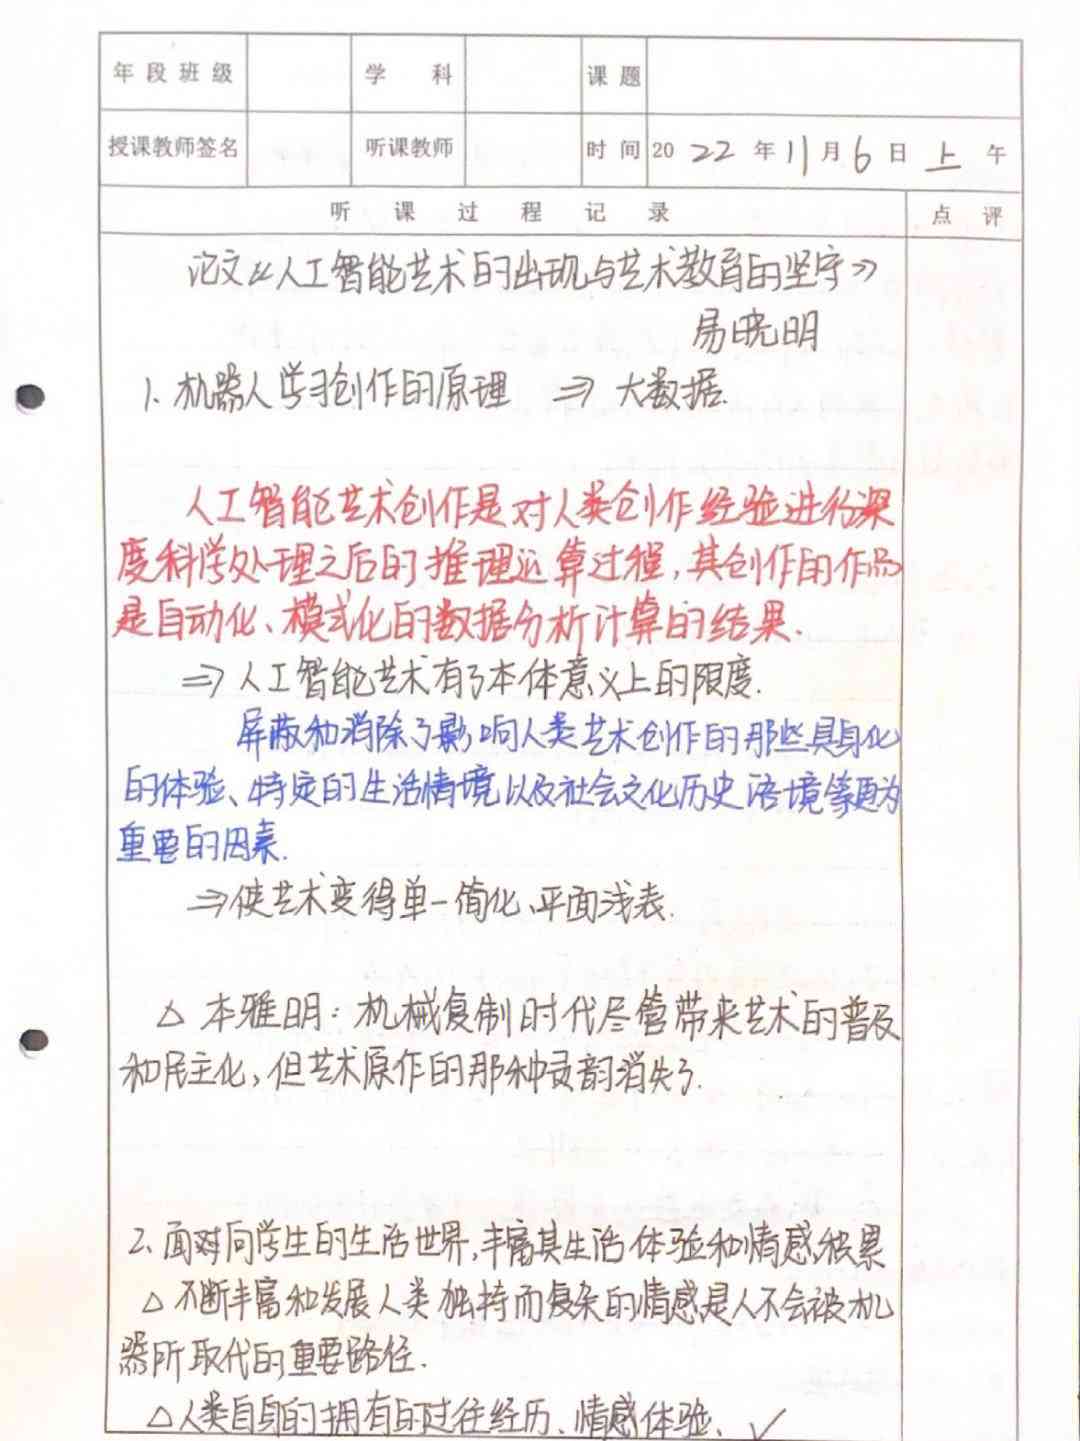 年段班级 学科 课题
授课教师签名 听课教师 时间 2022年11月6日上午
听课过程记录 点评
论文《人工智能艺术的出现与艺术教育的坚守》
易晓明
1. 机器人学习创作的原理 ⇒ 大数据.
人工智能艺术创作是对人类创作经验进行深
度科学处理之后的推理运算过程,其创作的作品
是自动化、模式化的数据分析计算的结果.
⇒人工智能艺术有了本体意义上的限度.
屏蔽和消除了影响人类艺术创作的那些具身化
的体验、特定的生活情境以及社会文化历史语境等更为
重要的因素.
⇒使艺术变得单一简化、平面浅表.
△ 本雅明:机械复制时代尽管带来艺术的普及
和民主化,但艺术原作的那种灵韵消失了.
2. 面对向学生的生活世界,丰富其生活体验和情感积累
△ 不断丰富和发展人类独特而复杂的情感是人不会被机
器所取代的重要路径.
△人类自身的拥有的过往经历、情感体验、✓